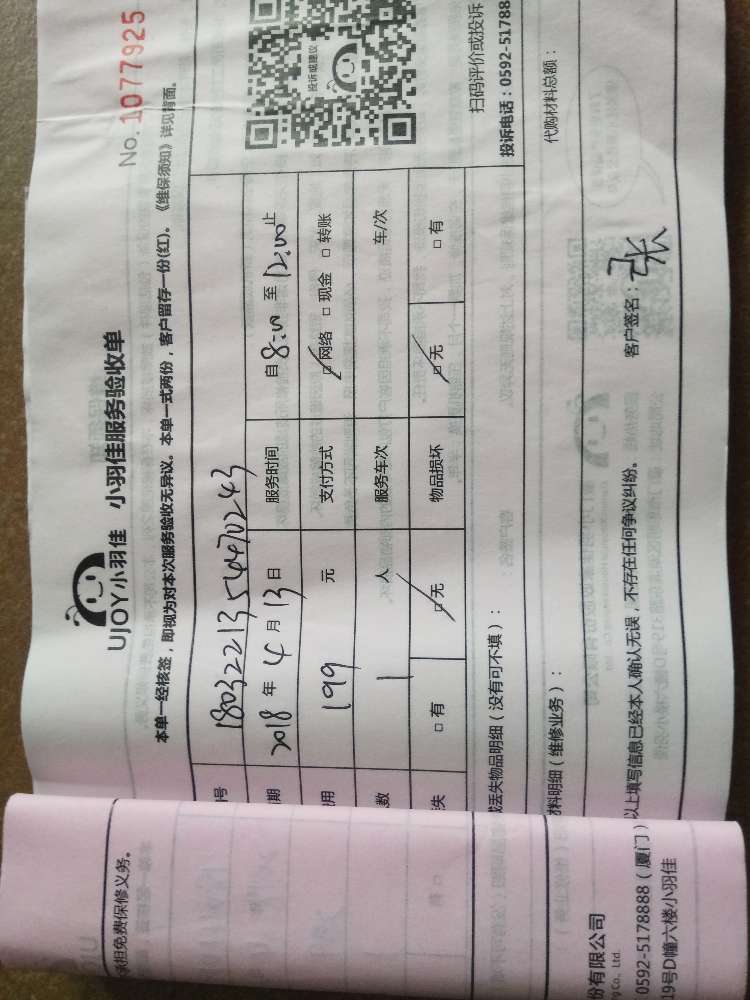 UJOY小羽佳 小羽佳服务验收单
No. 1077925
本单一经核签，即视为对本次服务验收无异议。本单一式两份，客户留存一份(红)。《维保须知》详见背面。
号 18032213544470243
期 2018 年 4 月 13 日 服务时间 自 8:00 至 12:00 止
用 199 元 支付方式 □网络 □现金 □转账
数 1 人 服务车次 车/次
失 □有 □无 物品损坏 □无 □有
投诉或建议
扫码评价或投诉
投诉电话：0592-51788
或丢失物品明细（没有可不填）：
材料明细（维修业务）：
代购材料总额：
以上填写信息已经本人确认无误，不存在任何争议纠纷。 客户签名：张
承担免费保修义务。
份有限公司
g Co., Ltd.
0592-5178888（厦门）
9号D幢六楼小羽佳